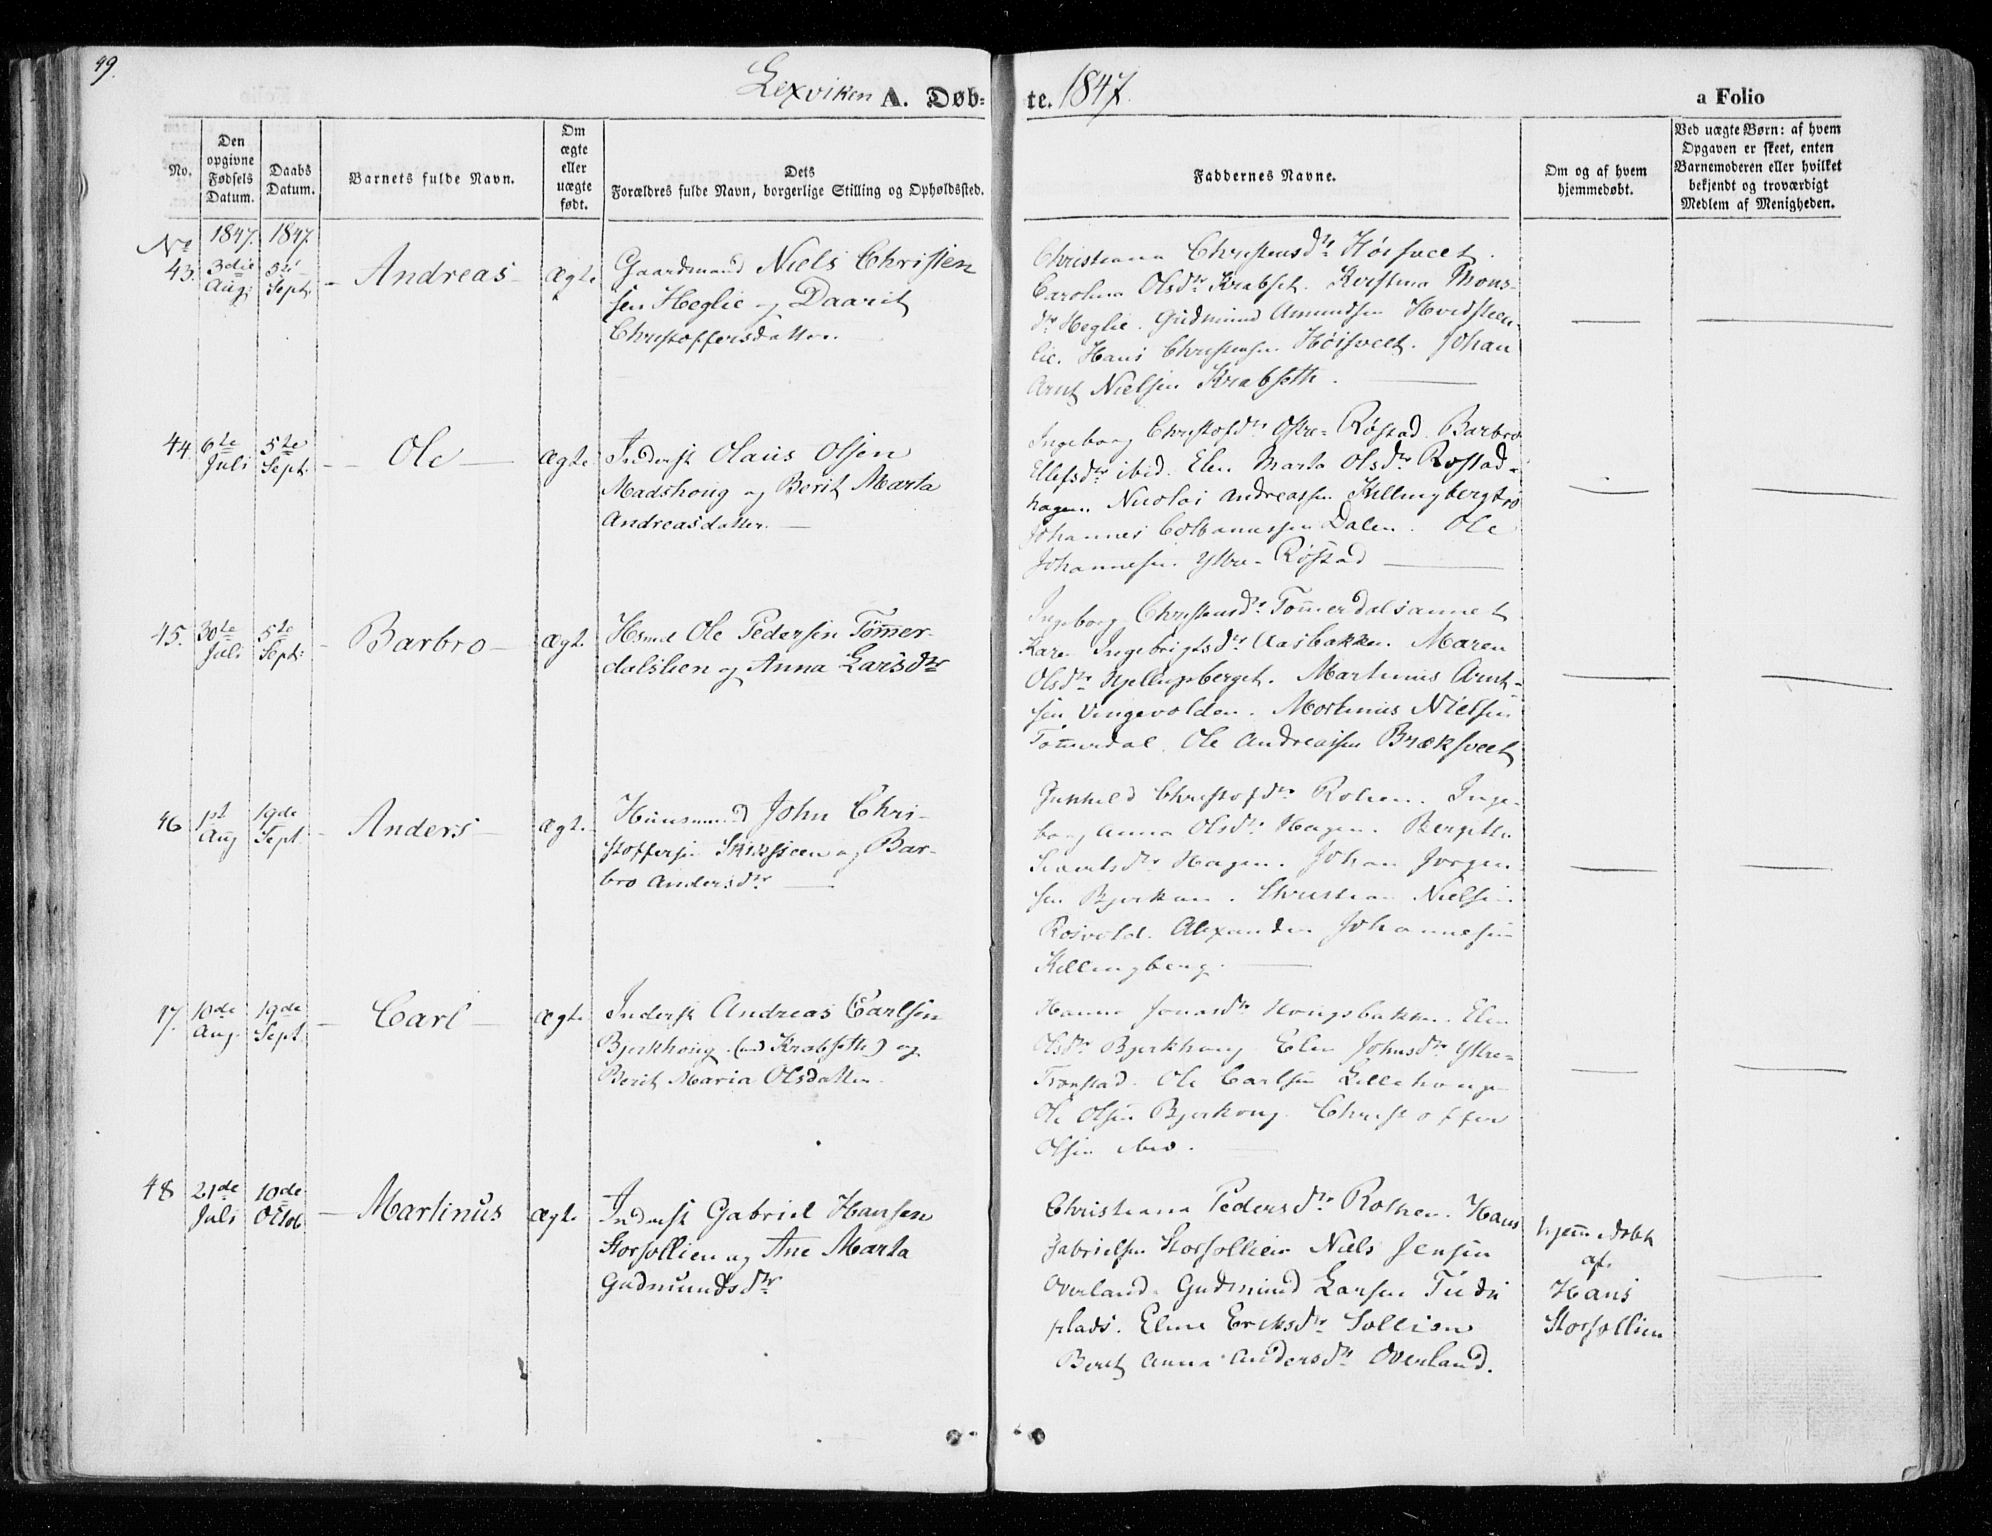 49.
Lexviken A. Døb=
te. 1847.
a Folio
No.
Den opgivne Fødsels Datum.
Daabs Datum.
Barnets fulde Navn.
Om ægte eller uægte født.
Dets
Forældres fulde Navn, borgerlige Stilling og Opholdssted.
Faddernes Navne.
Om og af hvem hjemmedøbt.
Ved uægte Børn: af hvem Opgaven er skeet, enten Barnemoderen eller hvilket bekjendt og troværdigt Medlem af Menigheden.
No 1847. 1847.
43. 3die Aug: 5te Sept. – Andreas – ægte
Gaardmand Niels Christen
sen Heglie og Daarit
Christoffersdatter. —
Christiana Christensdtr Høisveet.
Carolina Olsdtr Krabset. Kirstina Mons-
dtr Heglie. Gudmund Amundsen Hvidsteen-
lie. Hans Christensen Høisveet. Johan
Arnt Nielsen Krabseth. —
44 6te Juli 5te Sept. – Ole – ægte
Inderst Olaus Olsen
Madshoug og Berit Marta
Andreasdatter. —
Ingeborg Christofdtr Østre-Røstad. Barbro
Ellefsdtr ibid. Elen Marta Olsdtr Røstad-
hagen. Nicolai Andreassen Killingbergtrø
Johannes Dalen. Ole
Johannesen Ystre-Røstad —
45. 30te Juli 5te Sept: – Barbro – ægte
Hsmd Ole Pedersen Tømer-
dalslien og Anna Larsdtr
Ingeborg Christensdtr Tømerdalsaunet
Karen Ingebrigtsdtr Aasbakken. Maren
Olsdtr Hjellupsberget. Martinus Arnt-
sen Vingevolden. Mortinus Nielsen
Tømerdal. Ole Andreassen Bræksveet
46 1st Aug 19de Sept – Anders – ægte
Huusmand John Chri-
stoffersen og Bar-
bro Andersdtr —
Gunhild Christofdtr Rohen. Inge-
borg Anna Olsdtr Hagen. Bergitte
Sivertsdtr Hagen. Johan Jørgen
sen Bjerkan. Christian Nielsen
Rosvold. Alexander Johannesen
Killingberg. —
47. 10de Aug. 19de Sept – Carl – ægte
Inderst Andreas Carlsen
Bjerkhoug (ved Krabseth) og
Berit Maria Olsdatter.
Hanna Jonasdtr Hougsbakken. Elen
Olsdtr Bjerkhoug Elen Johnsdtr Ytre-
Tronstad. Ole Carlsen Lillehouge
Ole Olsen Bjerkoug. Christoffer
Olsen ibid. —
48 21de Juli 10de Octob – Martinus ægte
Inderst Gabriel Hansen
Storsollien og Ane Marta
Gudmundsdtr
Christiana Pedersdtr Rohen. Hans
Gabrielsen Storsollien Niels Jensen
Overland. Gudmund Larsen
plads. Eline Eriksdtr Sollien
Berit Anna Andersdtr Overland.
hjemedøbt
af.
Hans
Storsollien